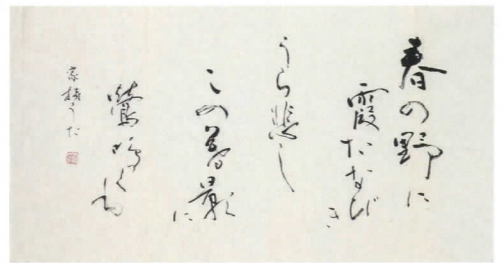 春の野に
霞たなびき
うら悲し
この暮影に
鶯鳴くも
家持